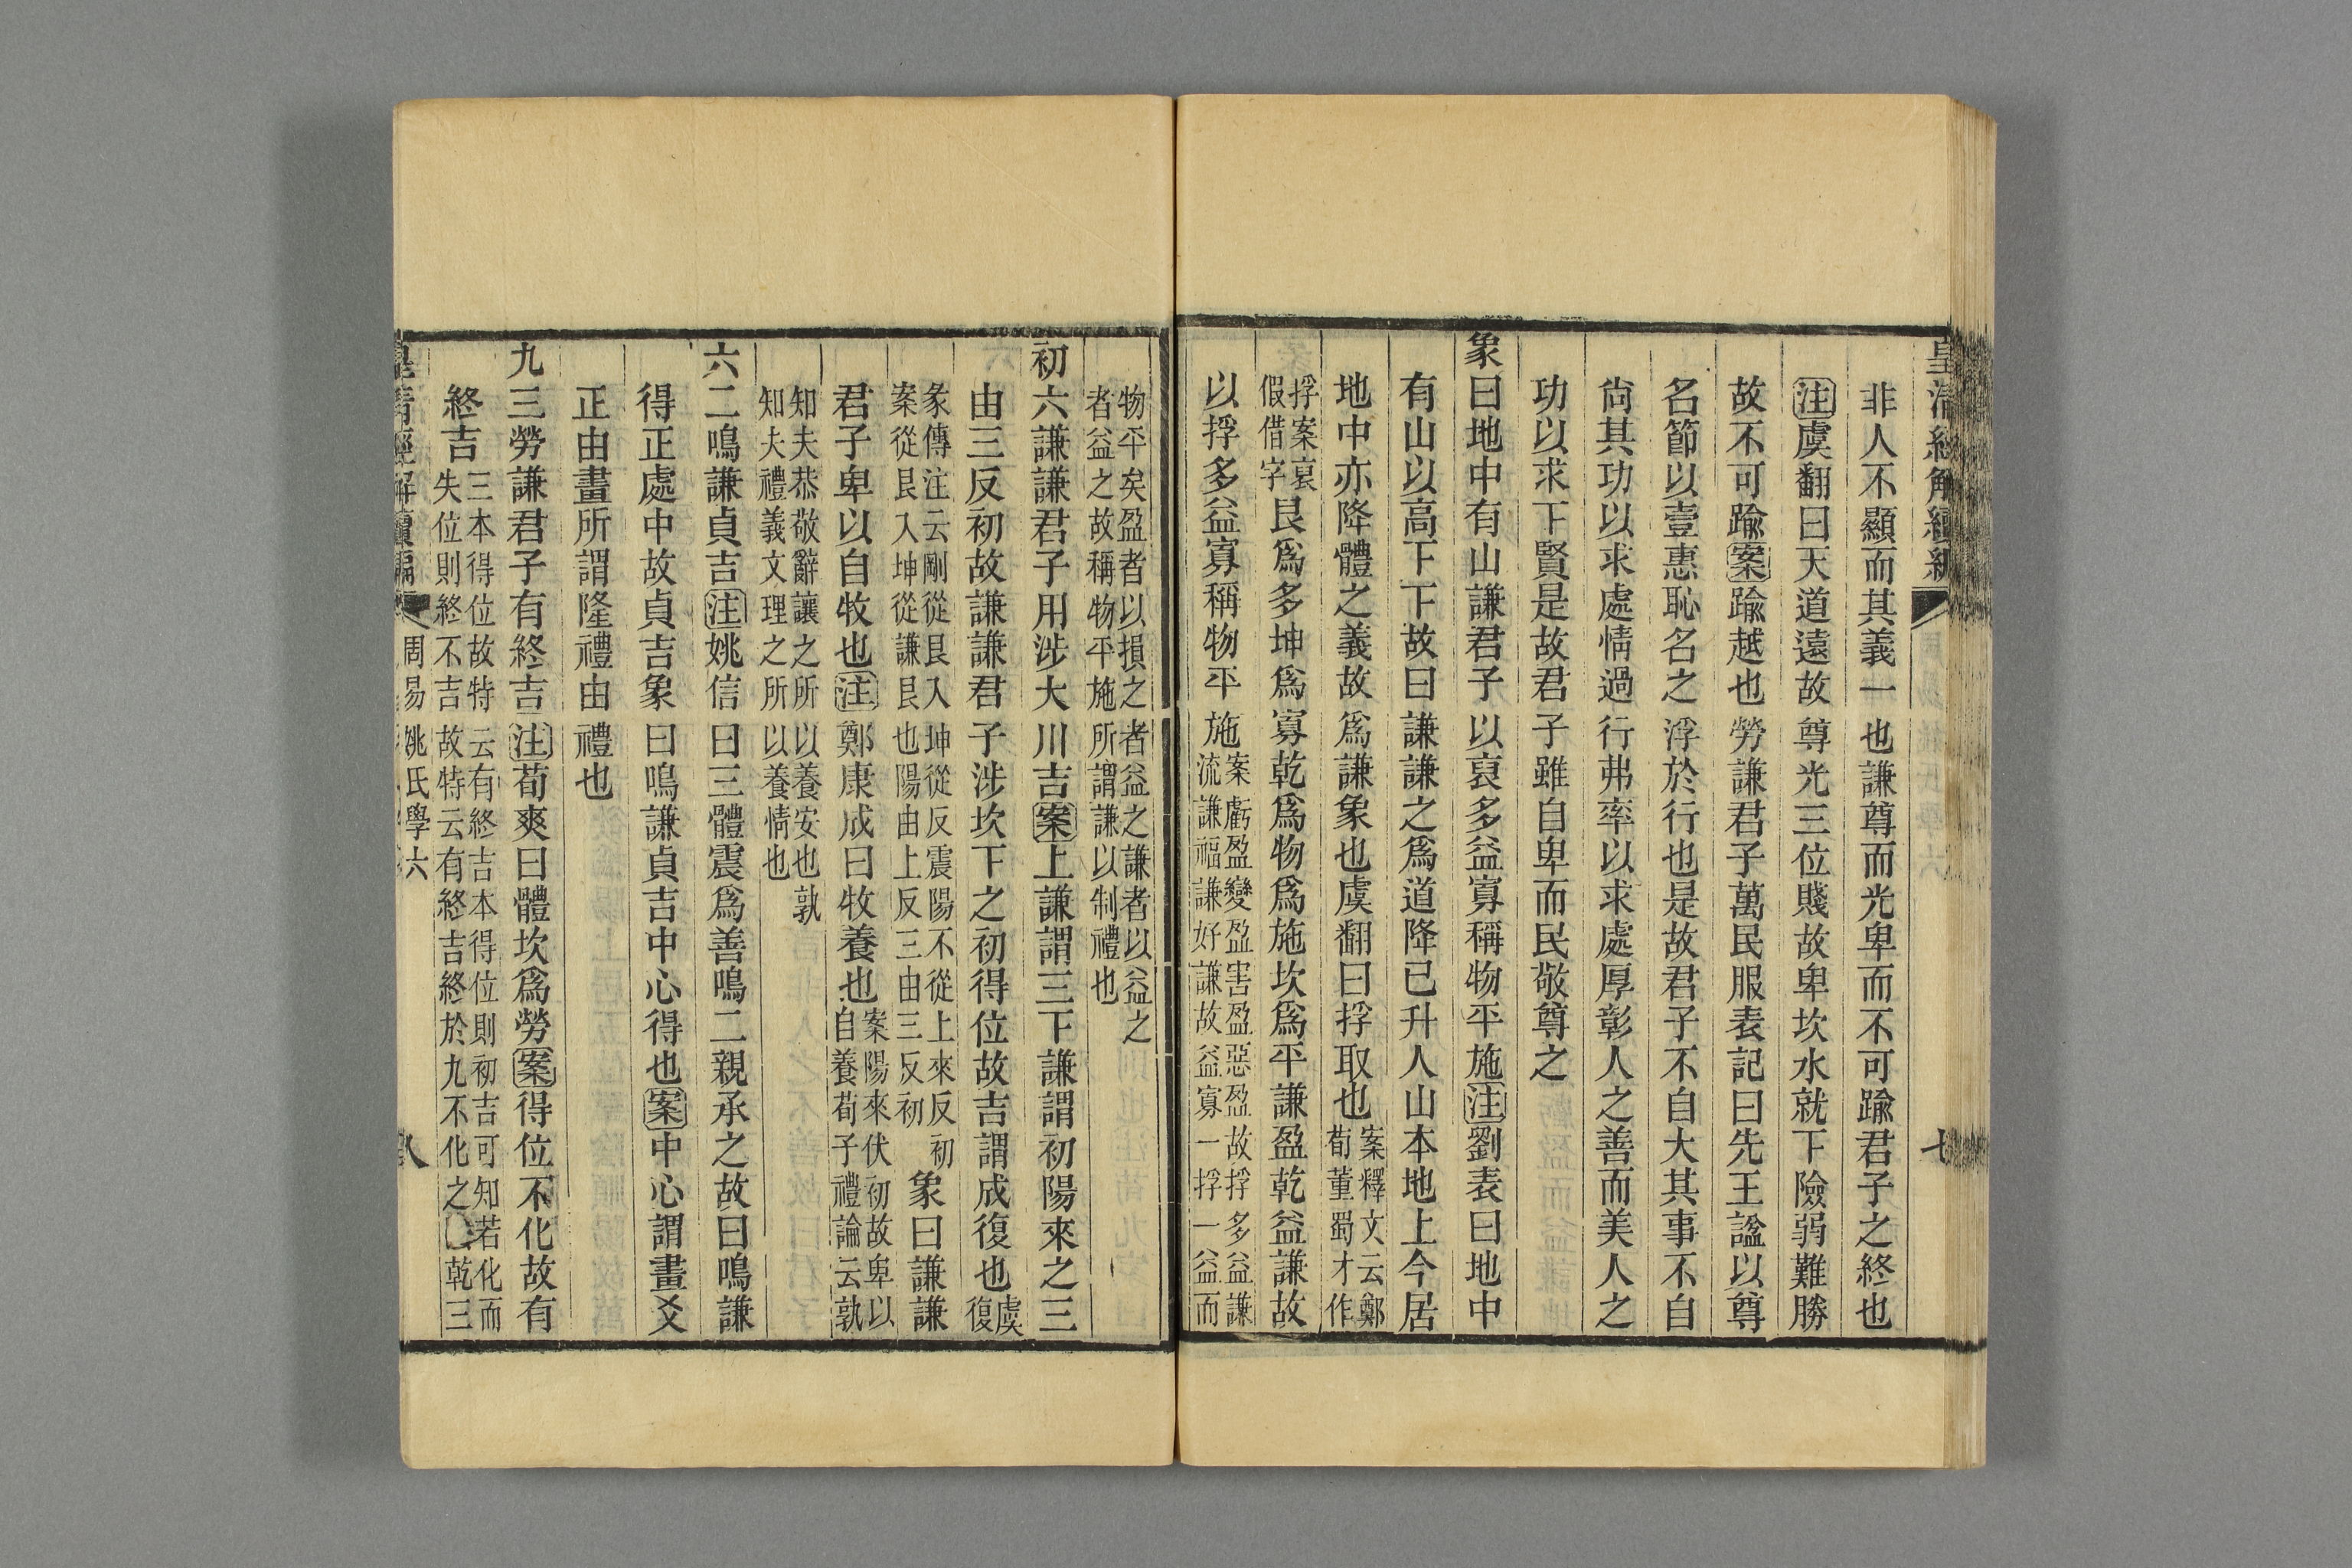 皇清經解續編
七
非人不顯而其義一也謙尊而光卑而不可踰君子之終也
注虞翻曰天道遠故尊光三位賤故卑坎水就下險弱難勝
故不可踰案踰越也勞謙君子萬民服表記曰先王諡以尊
名節以壹惠恥名之浮於行也是故君子不自大其事不自
尙其功以求處情過行弗率以求處厚彰人之善而美人之
功以求下賢是故君子雖自卑而民敬尊之
象曰地中有山謙君子以裒多益寡稱物平施注劉表曰地中
有山以高下下故曰謙謙之爲道降已升人山本地上今居
地中亦降體之義故爲謙象也虞翻曰捊取也案釋文云鄭
荀董蜀才作
捊案裒
假借字艮爲多坤爲寡乾爲物爲施坎爲平謙盈乾益謙故
以捊多益寡稱物平施案虧盈變盈害盈惡盈故捊多益謙
流謙福謙好謙故益寡一捊一益而
物平矣盈者以損之者益之謙者以益之
者益之故稱物平施所謂謙以制禮也
初六謙謙君子用涉大川吉案上謙謂三下謙謂初陽來之三
由三反初故謙謙君子涉坎下之初得位故吉謂成復也虞
復
彖傳注云剛從艮入坤從反震陽不從上來反初
案從艮入坤從謙艮也陽由上反三由三反初象曰謙謙
君子卑以自牧也注鄭康成曰牧養也案陽來伏初故卑以
自養荀子禮論云孰
知夫恭敬辭讓之所以養安也孰
知夫禮義文理之所以養情也
六二鳴謙貞吉注姚信曰三體震爲善鳴二親承之故曰鳴謙
得正處中故貞吉象曰鳴謙貞吉中心得也案中心謂畫爻
正由畫所謂隆禮由禮也
九三勞謙君子有終吉注荀爽曰體坎爲勞案得位不化故有
終吉三本得位故特云有終吉本得位則初吉可知若化而
失位則終不吉故特云有終吉終於九不化之乾三
皇清經解續編
周易姚氏學六
八